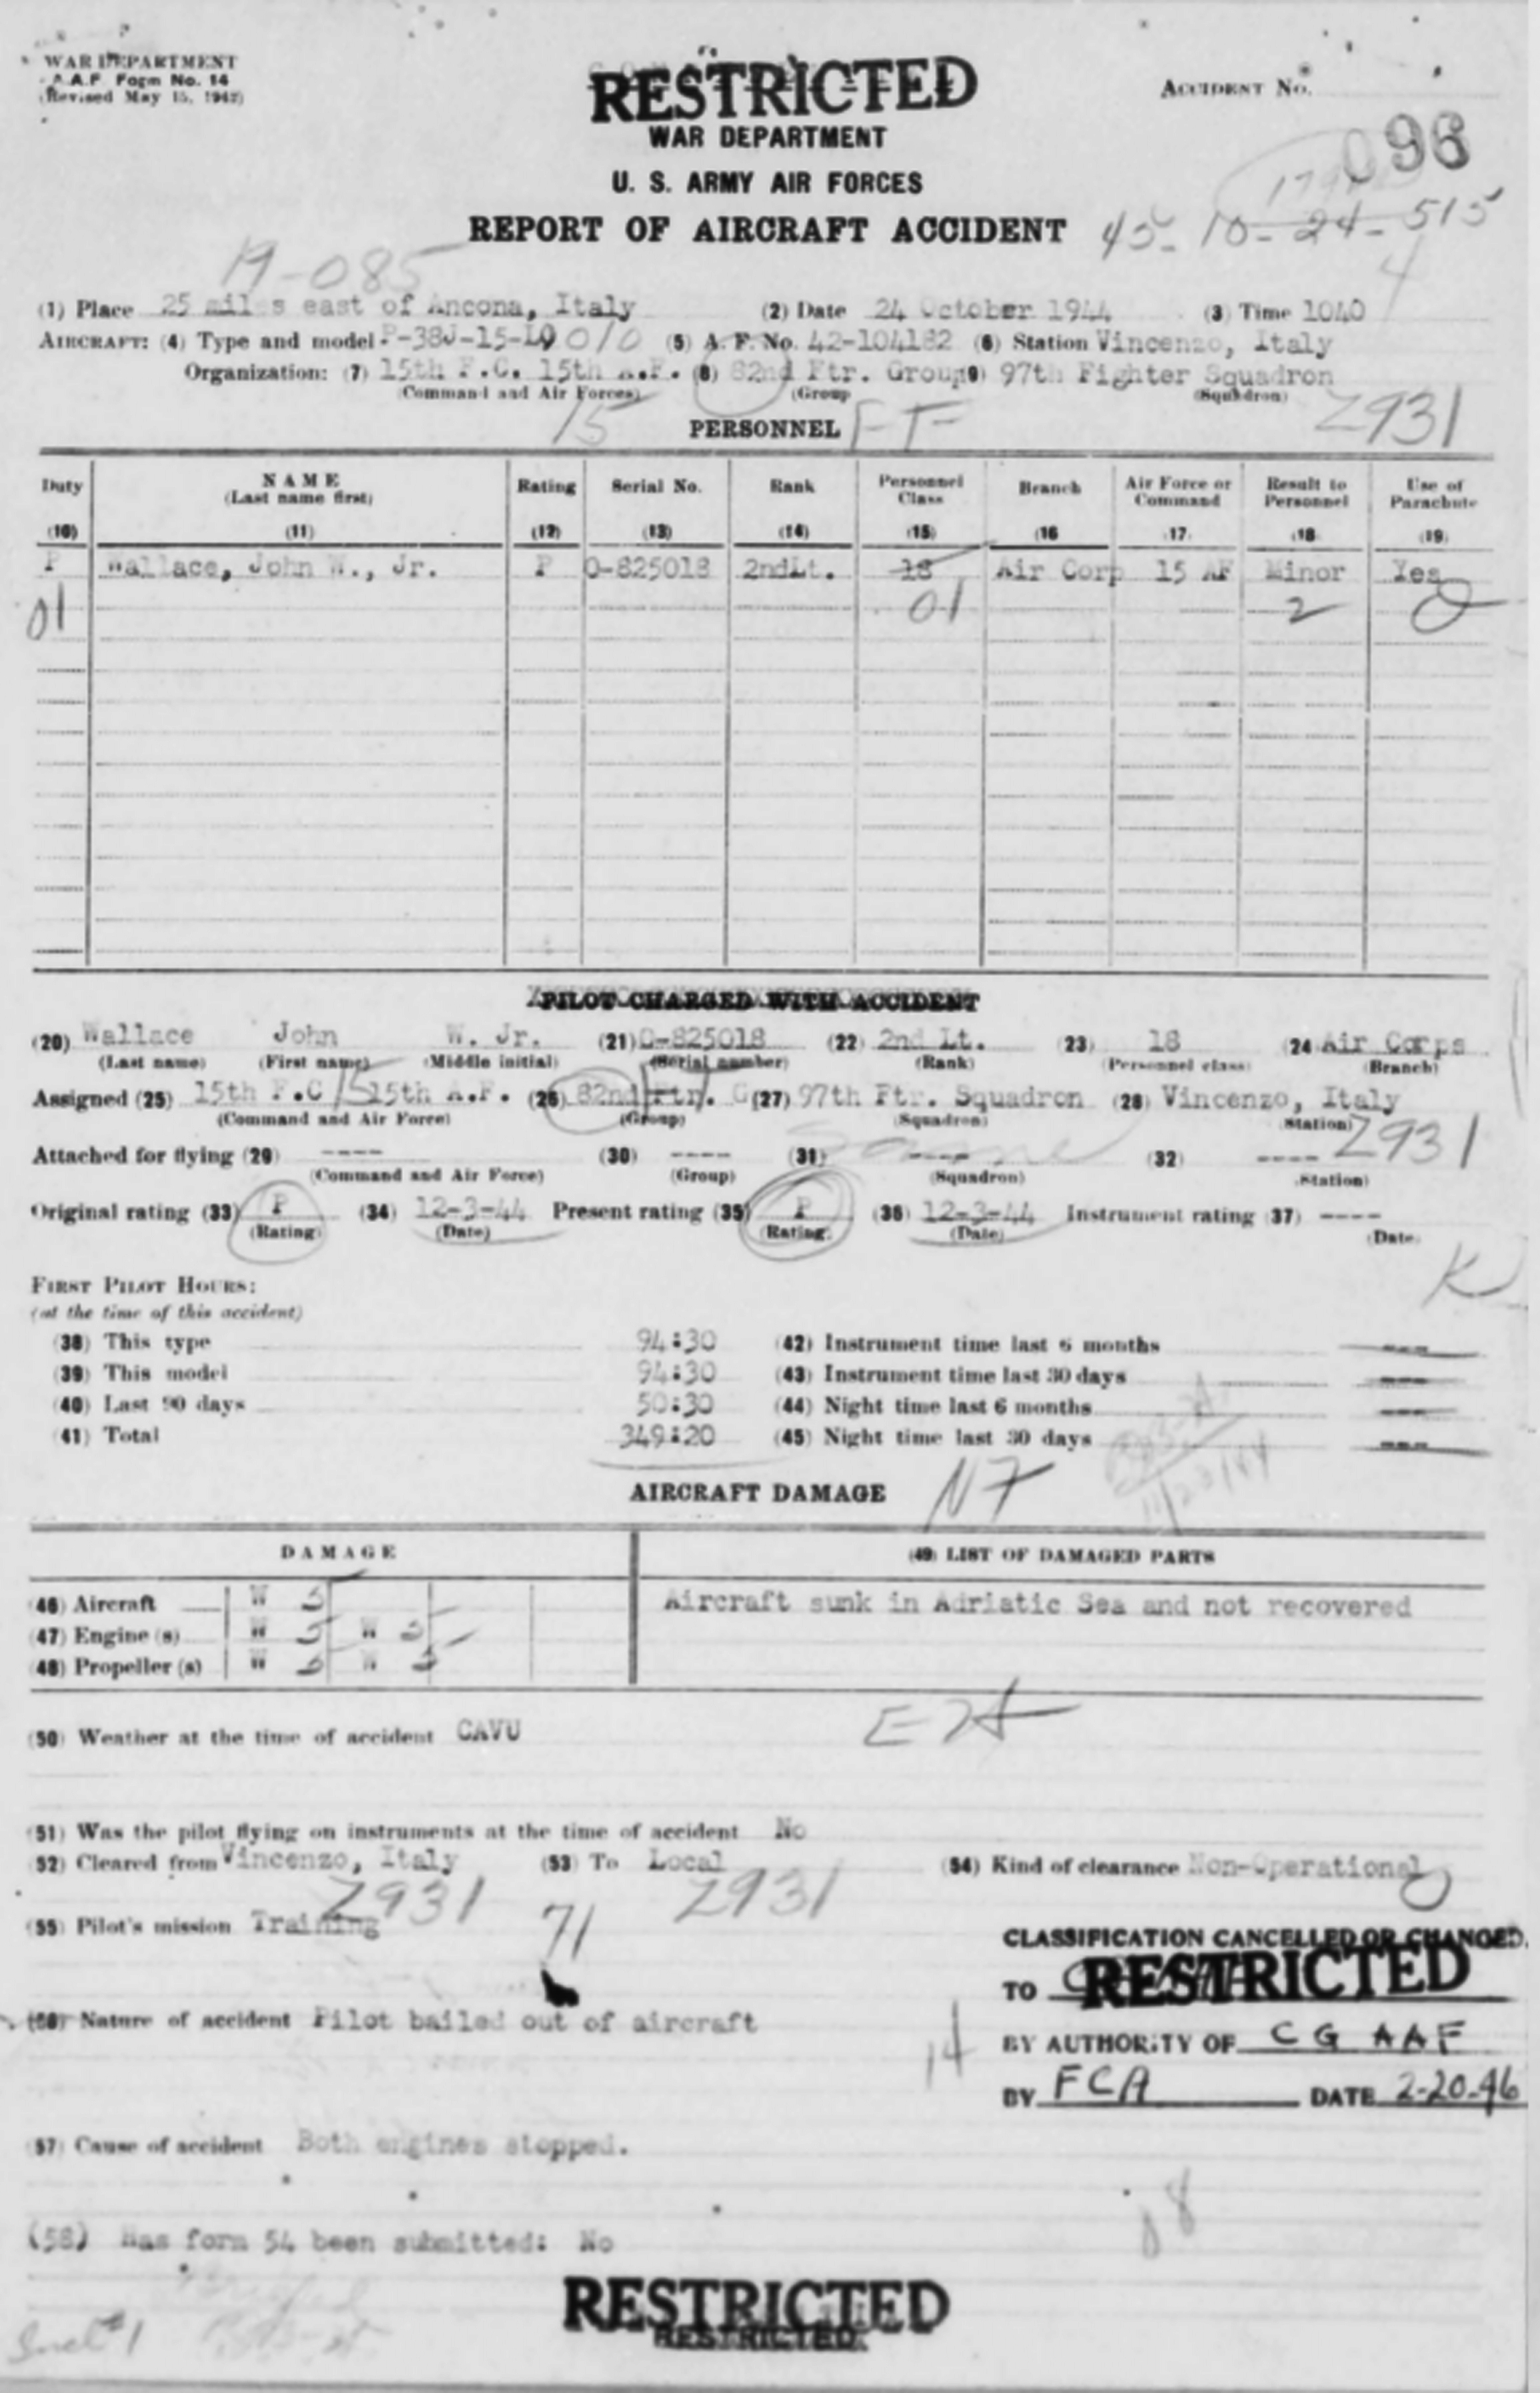 WAR DEPARTMENT
A.A.F. Form No. 14
(Revised May 15, 1942)
RESTRICTED
ACCIDENT No.
WAR DEPARTMENT
096
U. S. ARMY AIR FORCES
REPORT OF AIRCRAFT ACCIDENT 45-10-24-515
19-085 4
(1) Place 25 miles east of Ancona, Italy (2) Date 24 October 1944 (3) Time 1040
AIRCRAFT: (4) Type and model P-38J-15-LO 010 (5) A. F. No. 42-104182 (6) Station Vincenzo, Italy
Organization: (7) 15th F.C. 15th A.F. (8) 82nd Ftr. Group (9) 97th Fighter Squadron
(Command and Air Forces) (Group (Squadron)
15 PERSONNEL FF Z931
Duty NAME (Last name first) Rating Serial No. Rank Personnel Class Branch Air Force or Command Result to Personnel Use of Parachute
(10) (11) (12) (13) (14) (15) (16 17 18 (19)
P Wallace, John W., Jr. P O-825018 2ndLt. 18 Air Corp 15 AF Minor Yes
01 01 2 0
PILOT CHARGED WITH ACCIDENT
(20) Wallace John W. Jr. (21) O-825018 (22) 2nd Lt. (23) 18 24 Air Corps
(Last name) (First name) (Middle initial) (Serial number) (Rank) (Personnel class) (Branch)
Assigned (25) 15th F.C 15 15th A.F. (26) 82nd Ftr. G (27) 97th Ftr. Squadron (28) Vincenzo, Italy
(Command and Air Force) (Group) (Squadron) Station)
Z931
Attached for flying (29) ---- (30) ---- (31) ---- (32) ----
(Command and Air Force) (Group) (Squadron) Station)
Original rating (33) P (34) 12-3-44 Present rating (35) P (36) 12-3-44 Instrument rating (37) ----
(Rating) (Date) (Rating) (Date) (Date)
K
FIRST PILOT HOURS:
(at the time of this accident)
(38) This type 94:30 (42) Instrument time last 6 months ---
(39) This model 94:30 (43) Instrument time last 30 days ---
(40) Last 90 days 50:30 (44) Night time last 6 months ---
(41) Total 349:20 (45) Night time last 30 days ---
11/23/44
AIRCRAFT DAMAGE N7
DAMAGE (49) LIST OF DAMAGED PARTS
(46) Aircraft W 5 Aircraft sunk in Adriatic Sea and not recovered
(47) Engine (s) W 5 W 5
(48) Propeller (s) W 5 W 5
(50) Weather at the time of accident CAVU
(51) Was the pilot flying on instruments at the time of accident No
(52) Cleared from Vincenzo, Italy (53) To Local (54) Kind of clearance Non-Operational
Z931 Z931
(55) Pilot's mission Training 71
CLASSIFICATION CANCELLED OR CHANGED
TO RESTRICTED
(56) Nature of accident Pilot bailed out of aircraft
14
BY AUTHORITY OF CG AAF
BY FCA DATE 2-20-46
(57) Cause of accident Both engines stopped.
(58) Has form 54 been submitted: No
Incl #1
RESTRICTED
RESTRICTED